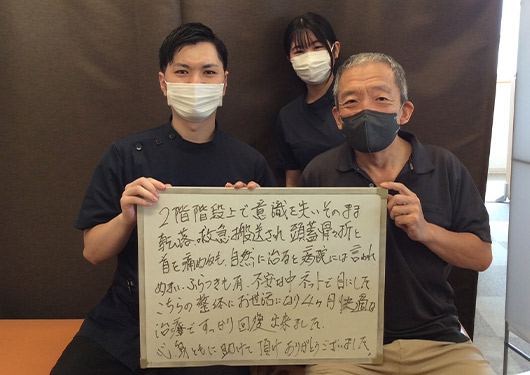 2階階段上で意識を失いそのまま
転落、救急搬送され頭蓋骨々折と
首を痛めるも、自然に治ると病院には言われ
めまい、ふらつき も有、不安な中ネットで目にした
こちらの整体にお世話になり4ヶ月 快適な
治療ですっかり回復出来ました。
心身ともに助けて頂けありがとうございました。